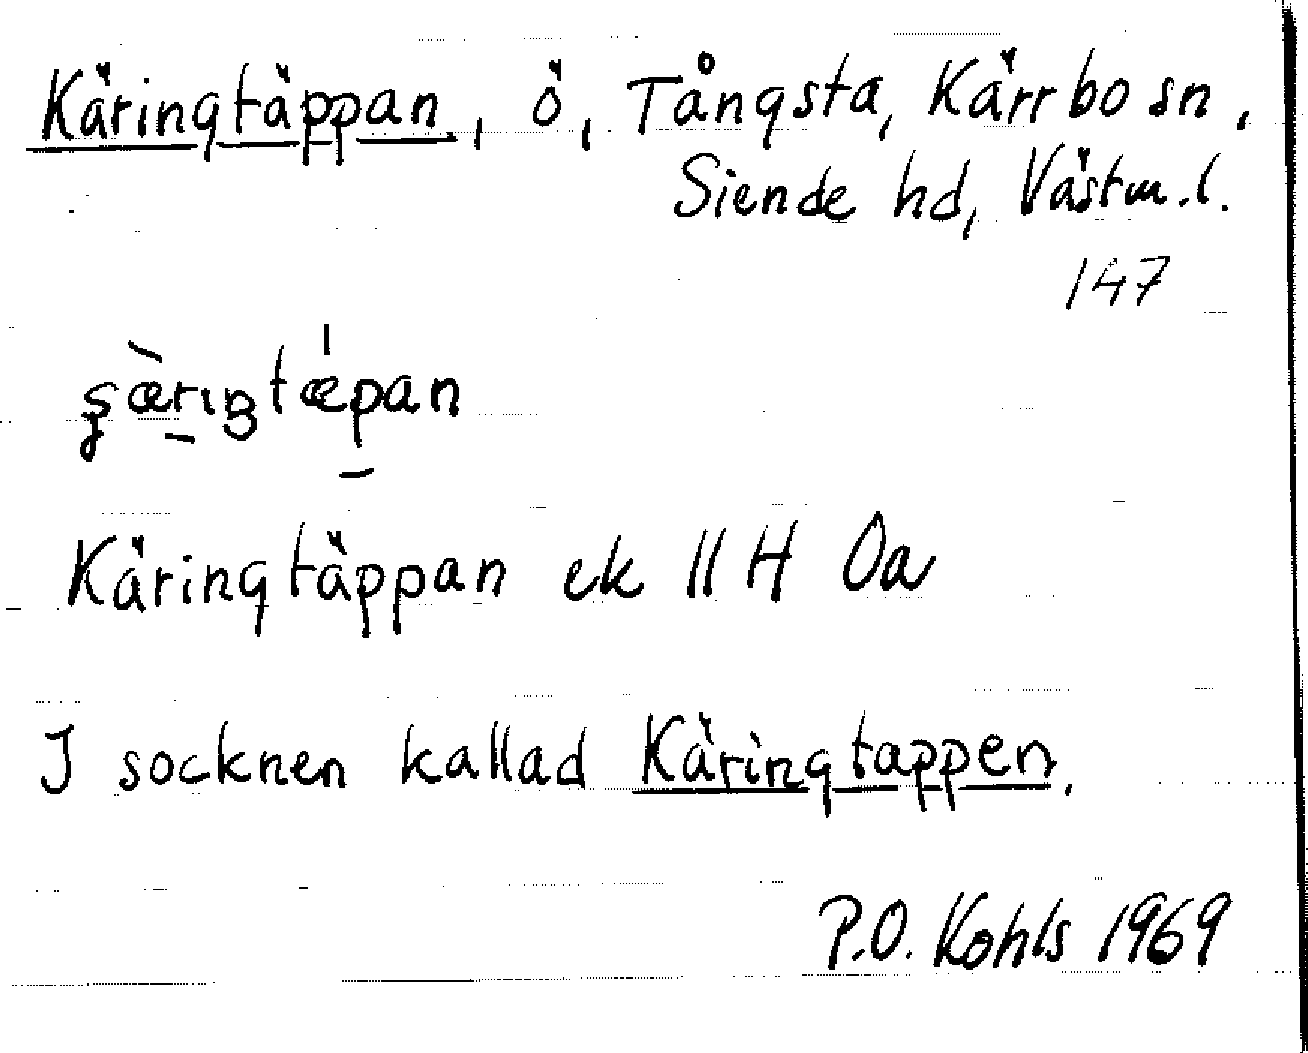 Käringtäppan, ö, Tångsta, Kärrbo sn,
Siende hd, Västm.l.
147
Käringtäppan ek 11 H 0a
I socknen kallad Käringtappen.
P.O. Kohls 1969